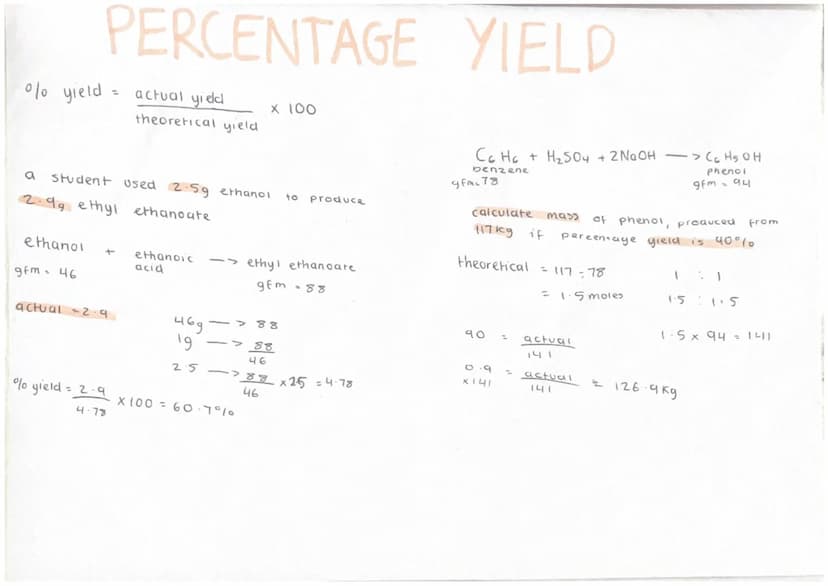 PERCENTAGE YIELD
% yield = actual yield / theoretical yield x 100
a student used 2.5g ethanol to produce
2.9g ethyl ethanoate
ethanol + ethanoic acid —> ethyl ethanoate
gfm = 46
gfm = 88
actual = 2.9
46g —> 88
1g —> 88/46
2.5 —> 88/46 x 25 = 4.78
% yield = 2.9/4.78 x 100 = 60.7%
C6H6 + H2SO4 + 2NaOH —> C6H5OH
benzene phenol
gfm = 78 gfm = 94
calculate mass of phenol, produced from
117kg if percentage yield is 40%
theoretical = 117 ÷ 78 1 : 1
= 1.5 moles 1.5 : 1.5
90 = actual/141 1.5 x 94 = 141
0.9 x141 = actual/141 = 126.9kg